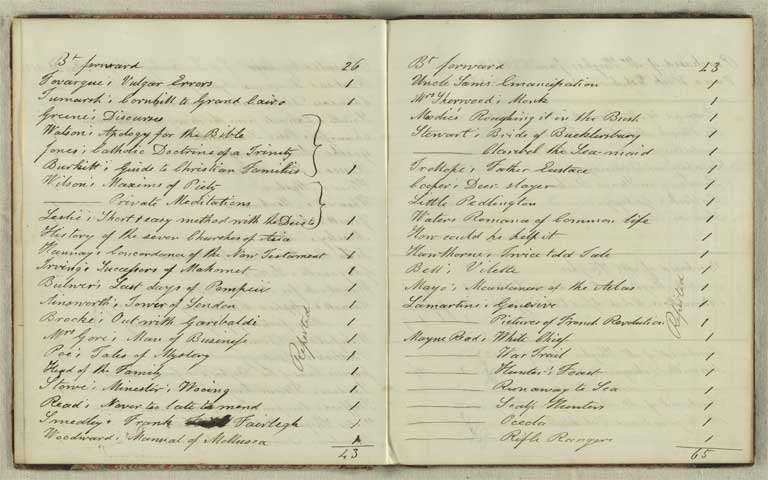 Bt forward 26
Fovargue's Vulgar Errors 1
Tumarsh's Cornhill to Grand Cairo 1
Greene's Discourses
Watson's Apology for the Bible
Jones's Catholic Doctrine of a Trinity
Burkitt's Guide to Christian Families 1
Wilson's Maxims of Piety
——— Private Meditations
Leslie's Short & easy method with the Deists 1
History of the seven Churches of Asia 1
Hannay's Concordance of the New Testament 1
Irving's Successors of Mahomet 1
Bulwer's Last days of Pompeii 1
Ainsworth's Tower of London 1
Brock's Out with Garibaldi 1
Mrs Gore's Man of Business 1
Poe's Tales of Mystery 1
Head of the Family 1
Stowe's Minister's Wooing 1
Read's Never too late to mend 1
Smedley's Frank Fairlegh 1
Woodward's Manual of Mollusca 1
43
Bt forward 43
Uncle Sam's Emancipation 1
Mrs Sherwood's Monk 1
Moodie's Roughing it in the Bush 1
Stewart's Bride of Bucklersbury 1
——— Claribel the Sea maid 1
Trollope's Father Eustace 1
Cooper's Deer slayer 1
Little Pedlington 1
Waters Romance of Common life 1
How could he help it 1
Hawthorne's Twice told Tale 1
Bell's Vilette 1
Mayo's Mountaineer of the Atlas 1
Lamartine's Genevive 1
——— Pictures of French Revolution 1
Mayne Reid's White Chief 1
——— War Trail 1
——— Hunter's Feast 1
——— Run away to Sea 1
——— Scalp Hunters 1
——— Oceola 1
——— Rifle Rangers 1
65